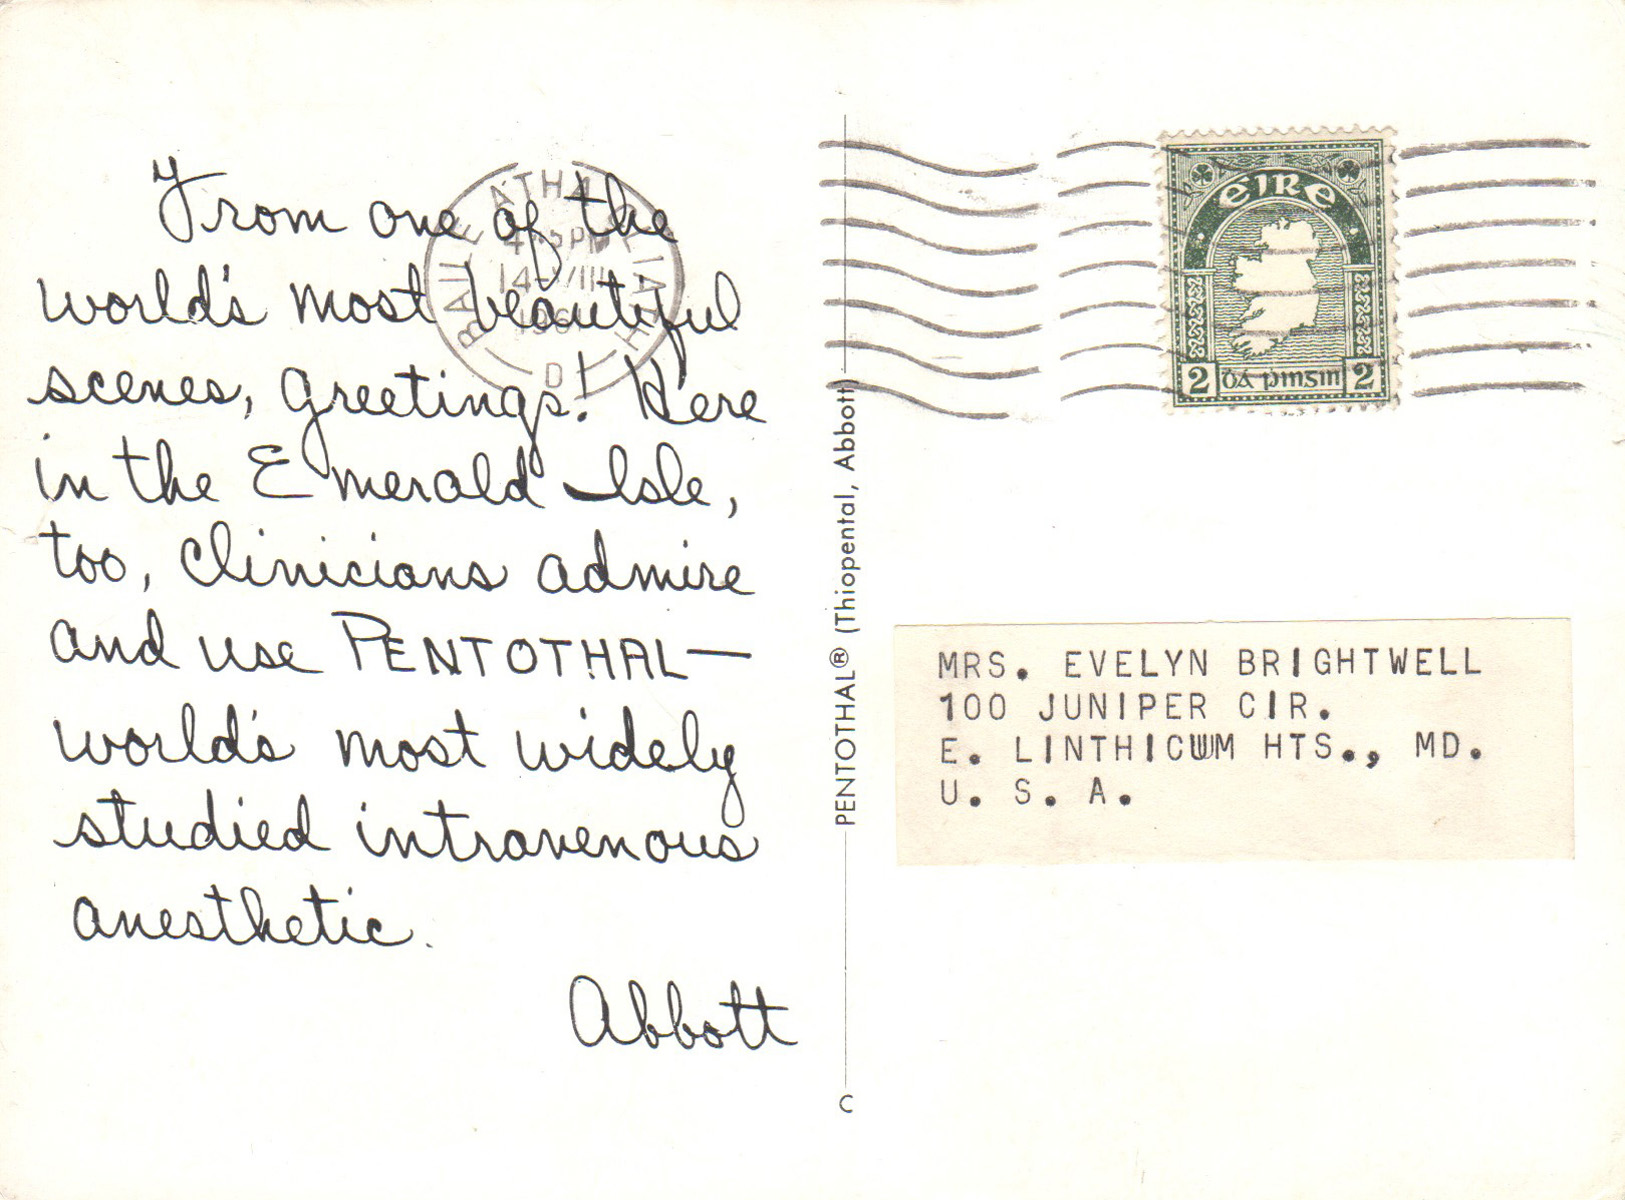 From one of the
world's most beautiful
scenes, greetings! Here
in the Emerald Isle,
too, clinicians admire
and use PENTOTHAL—
world's most widely
studied intravenous
anesthetic.
Abbott
BAILE ATHA CLIATH
14-VIII
D
PENTOTHAL® (Thiopental, Abbott)
C
EIRE
2 DÁ PINGIN 2
MRS. EVELYN BRIGHTWELL
100 JUNIPER CIR.
E. LINTHICUM HTS., MD.
U. S. A.